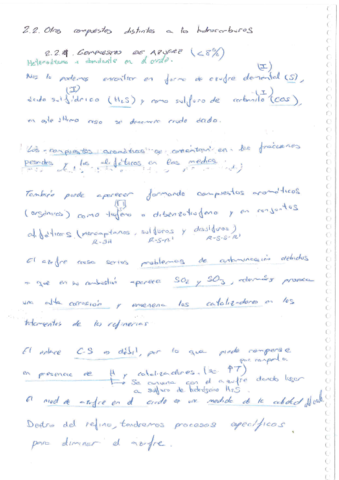 2.2. Otros compuestos distintos a los hidrocarburos
2.2.1 Compuestos de azufre (<8%)
Heteroátomo + abundante en el crudo.
Nos lo podemos encontrar en forma de azufre elemental (S),
(I)
ácido sulfhídrico (H2S) y como sulfuro de carbonilo (COS),
(I) (I)
en este último caso se denomina crudo ácido.
Los compuestos aromáticos se encuentran en las fracciones
pesadas y los alifáticos en las medias.
También puede aparecer formando compuestos aromáticos
(orgánicos) como tiofeno o dibenzotiofeno y en conjuntos
alifáticos (mercaptanos, sulfuros y disulfuros)
R-SH R-S-R' R-S-S-R'
El azufre causa serios problemas de contaminación debido
a que en su combustión aparece SO2 y SO3, además provoca
una alta corrosión y envenena los catalizadores de los
elementos de las refinerías
El enlace C-S es débil, por lo que puede romperse
en presencia de H y catalizadores.
Se combina con el azufre dando lugar
a sulfuro de hidrógeno H2S
El azufre en el crudo es una medida de la calidad
Dentro del refino, tendremos procesos específicos
para eliminar el azufre.